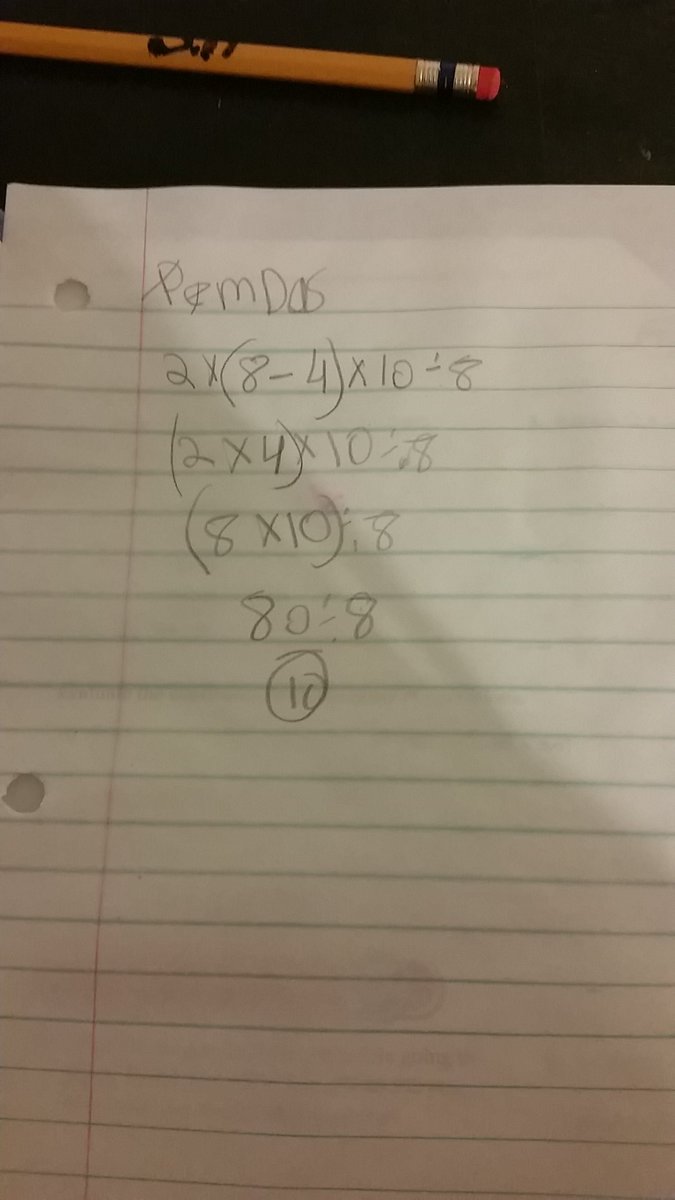 PemDas
2×(8-4)×10÷8
(2×4)×10÷8
(8×10)÷8
80÷8
10